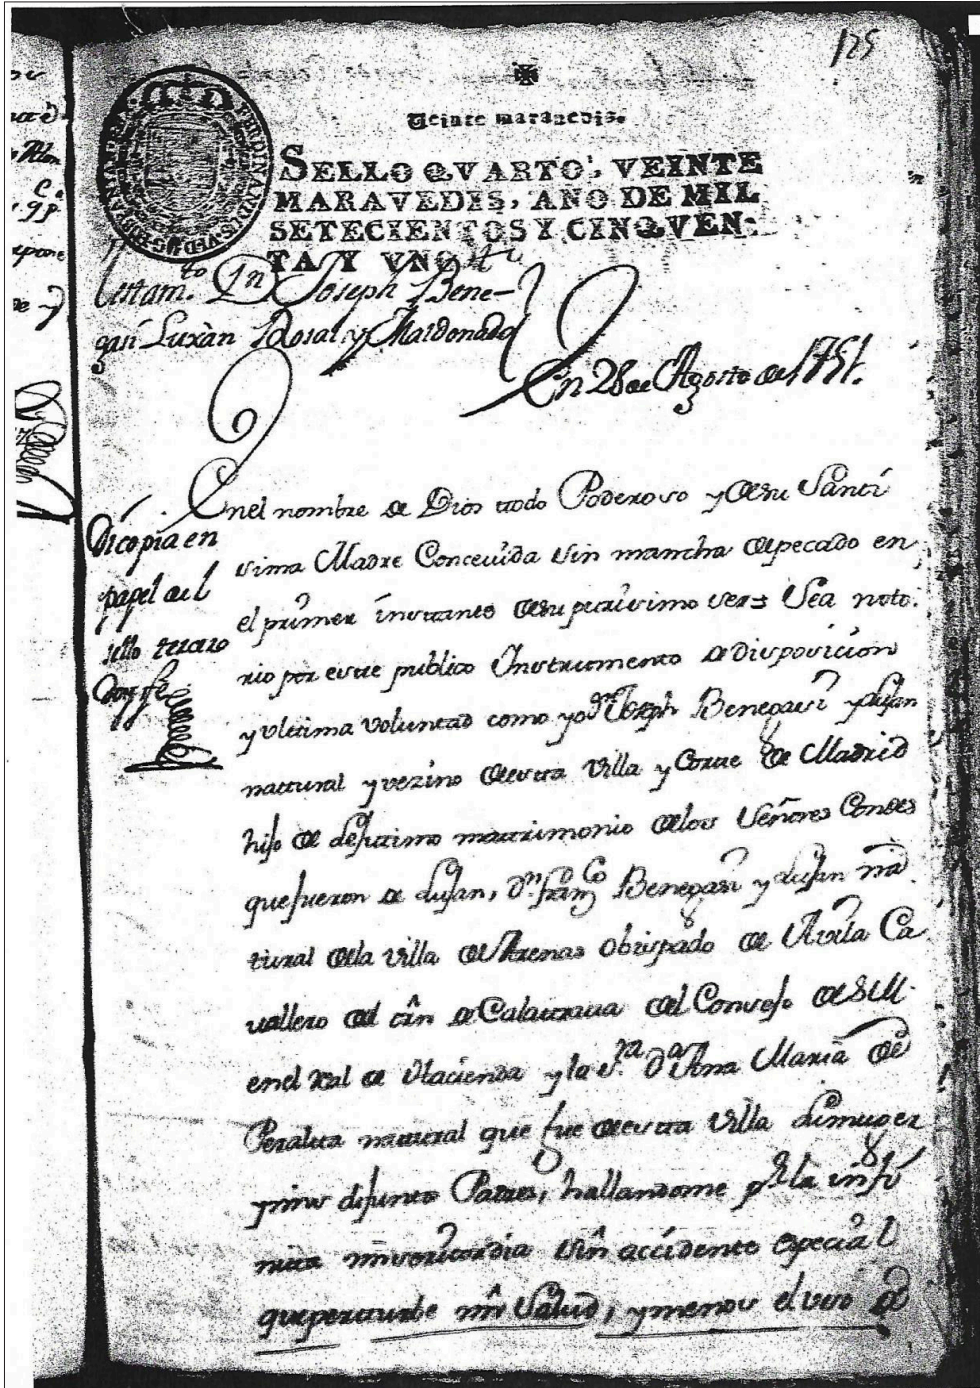 125
Veinte maravedis.
SELLO QVARTO, VEINTE
MARAVEDIS, AÑO DE MIL
SETECIENTOS Y CINQVEN-
TA Y VNO.
Testam.to Dn Joseph Bene-
gasi Luxàn Rosal y Maldonado
En 28 de Agosto de 1751.
Di copia en
papel del
sello terzero
doy fe
Enel nombre de Dios todo Poderoso y desu Santi
sima Madre Concevida sin mancha depecado en
el primer instante desu purisimo ser= Sea noto.
rio por este publico Instrumento de disposicion
y ultima voluntad como yo Dn Joseph Benegasi y Lujan
natural y vezino deesta Villa y Corte de Madrid
hijo de lejitimo matrimonio delos Señores Condes
quefueron de Lujan, Dn. Franco Benegasi y Lujan na
tural dela villa de Arenas obispado de Avila Ca
vallero del orn de Calatrava del Consejo de S.M.
enel Rl de Hacienda y la Sra. Da Ana Maria de
Peralta natural que fue deesta Villa su muger
y mis difuntos Padres, hallandome pr la infi
nita misericordia sin accidente especial
queperturbe mi Salud, y menos el uso de